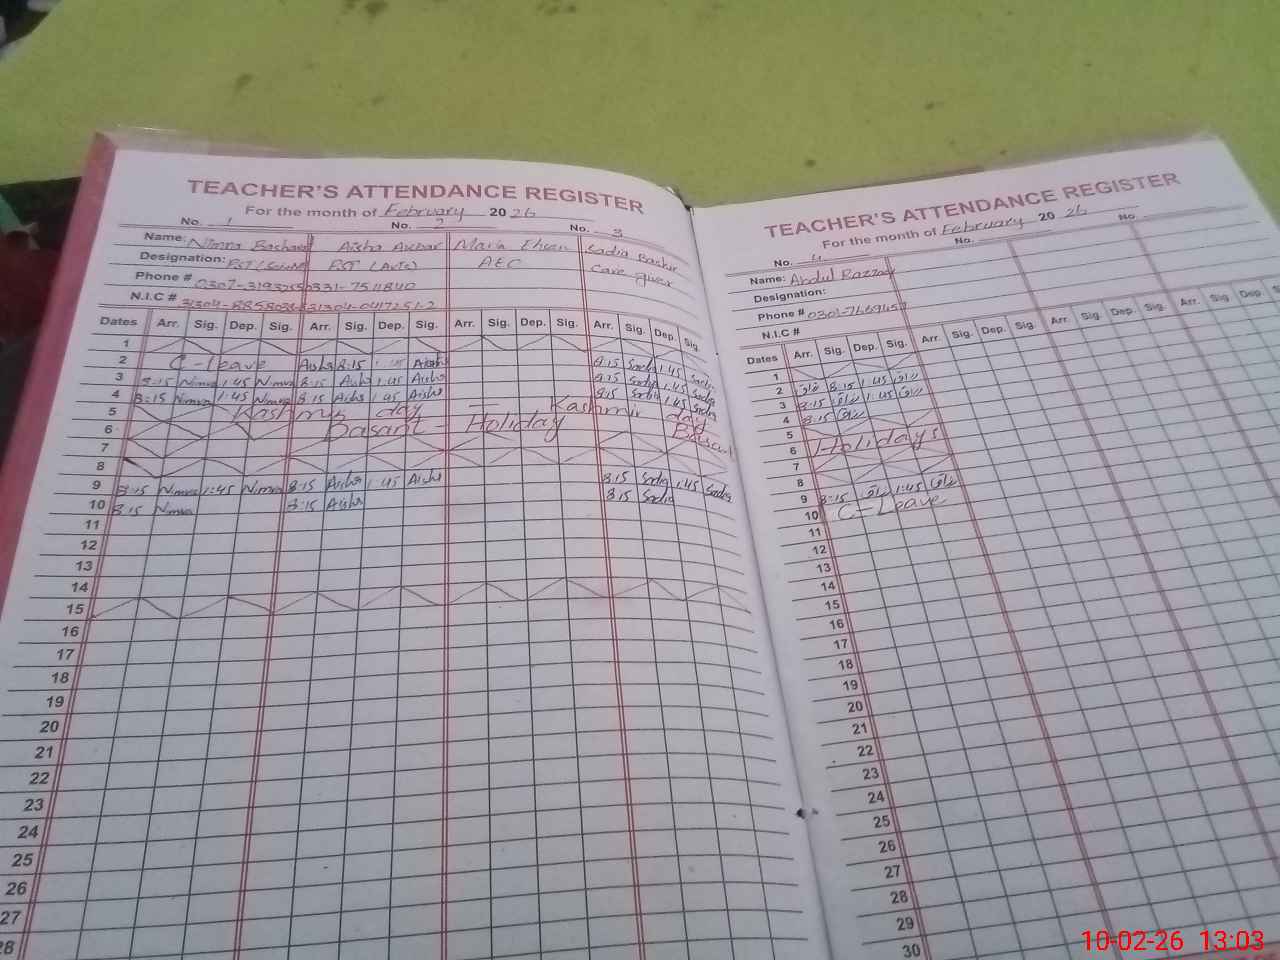 TEACHER'S ATTENDANCE REGISTER
For the month of February 2026
No. 1 No. 2 No. 3
Name: Nimra Aisha Maria Sadia
Designation: PST PST (Arts) AEC Care giver
Phone #
N.I.C #
Dates Arr. Sig. Dep. Sig. Arr. Sig. Dep. Sig. Arr. Sig. Dep. Sig. Arr. Sig. Dep. Sig.
1
2 C-Leave Aisha 8:15 Aisha 8:15 Sadia 1:45 Sadia
3 8:15 Nimra 1:45 Nimra 8:15 Aisha 1:45 Aisha 8:15 Sadia 1:45 Sadia
4 8:15 Nimra 1:45 Nimra 8:15 Aisha 1:45 Aisha 8:15 Sadia 1:45 Sadia
5 Kashmir day — Kashmir day
6 Basant - Holiday Basant
7
8
9 8:15 Nimra 1:45 Nimra 8:15 Aisha 1:45 Aisha 8:15 Sadia 1:45 Sadia
10 8:15 Nimra 8:15 Aisha 8:15 Sadia
11
12
13
14
15
16
17
18
19
20
21
22
23
24
25
26
27
28
TEACHER'S ATTENDANCE REGISTER
For the month of February 2026
No. 4 No. No.
Name: Abdul Razzaq
Designation:
Phone #
N.I.C #
Dates Arr. Sig. Dep. Sig. Arr. Sig. Dep. Sig. Arr. Sig. Dep.
1
2 8:15 1:45
3 8:15 1:45
4 8:15
5
6 Holidays
7
8
9 8:15 1:45
10 C-Leave
11
12
13
14
15
16
17
18
19
20
21
22
23
24
25
26
27
28
29
30
10-02-26 13:03